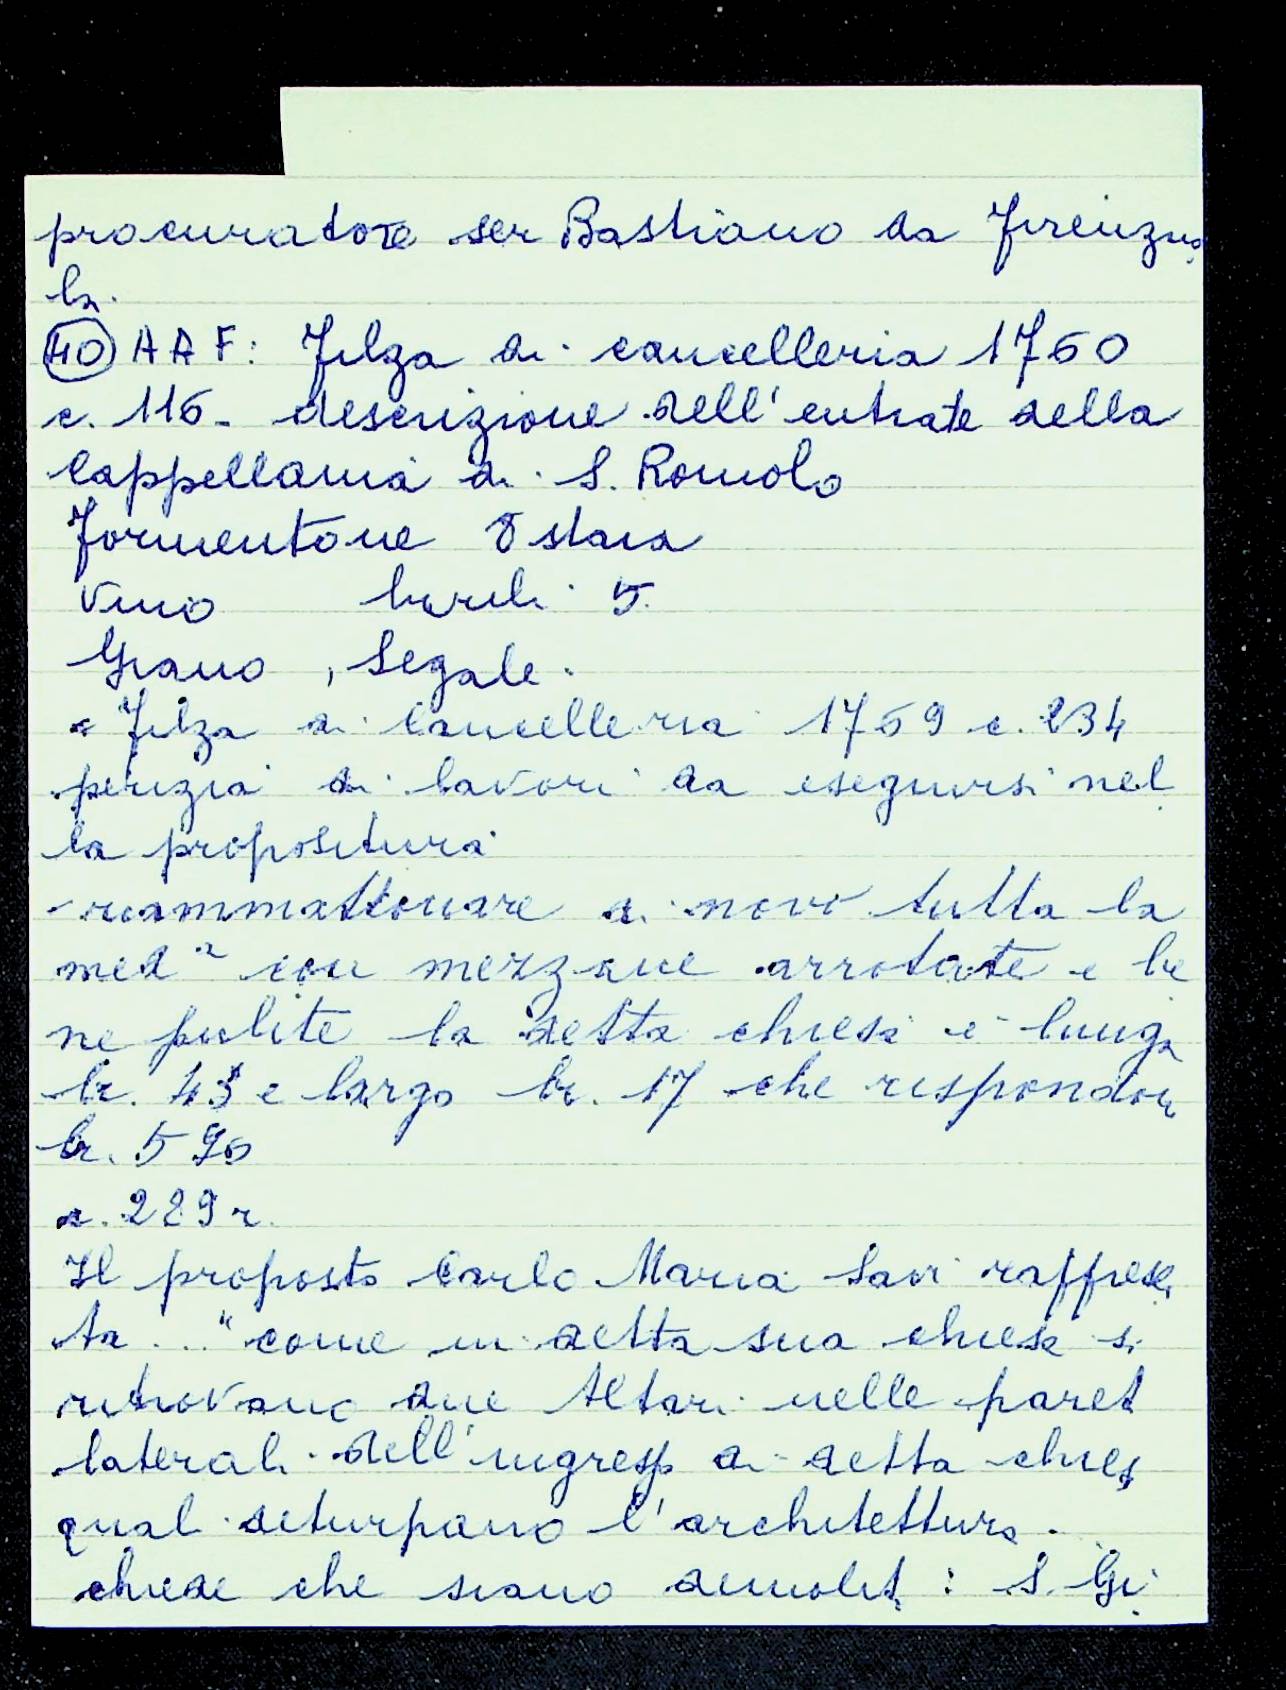 procuratore ser Bastiano da Firenzuo
la.
40 AAF: Filza di cancelleria 1760
c. 116- descrizione dell'entrate della
Cappellania di S. Romolo
Formentone 8 staia
Vino barili 5.
Grano, Segale.
Filza di Cancelleria 1769 c. 234
perizia di lavori da eseguirsi nel
la propositura
- riammattonare di novo tutta la
med.a con mezzane arrotate e be
ne pulite la detta chiesa è lunga
br. 43 e largo br. 17 che rispondon
br. 590
c. 289 r.
Il proposto Carlo Maria Savi rappresen
ta ... "come in detta sua chiesa si
ritrovano due Altari nelle paret
laterali dell'ingresso di detta chiesa
quali deturpano l'architettura.
chiede che siano demoliti: S. Gi